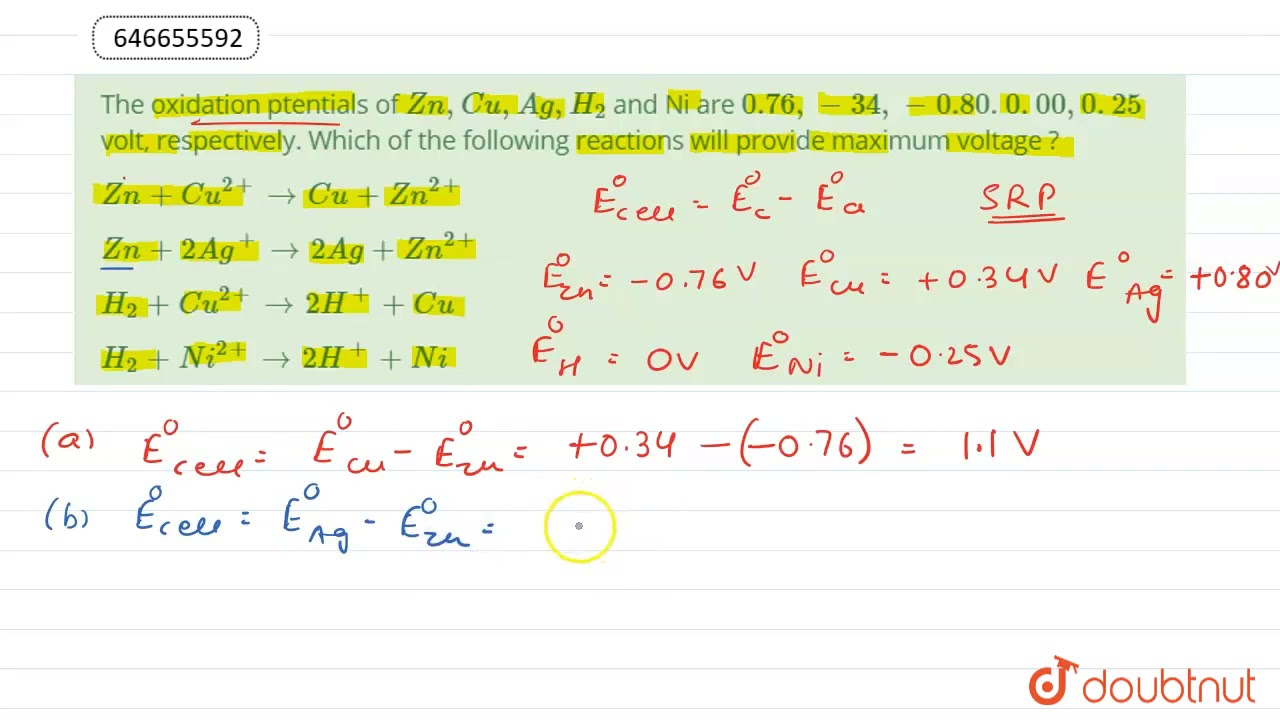 646655592
The oxidation ptentials of Zn, Cu, Ag, H₂ and Ni are 0.76, −34, −0.80. 0. 00, 0. 25
volt, respectively. Which of the following reactions will provide maximum voltage ?
Zn + Cu²⁺ → Cu + Zn²⁺
Zn + 2Ag⁺ → 2Ag + Zn²⁺
H₂ + Cu²⁺ → 2H⁺ + Cu
H₂ + Ni²⁺ → 2H⁺ + Ni
E⁰cell = E⁰c - E⁰a SRP
E⁰Zn = -0.76 V E⁰Cu = +0.34 V E⁰Ag = +0.80V
E⁰H = 0V E⁰Ni = -0.25 V
(a) E⁰cell = E⁰Cu - E⁰Zn = +0.34 - (-0.76) = 1.1 V
(b) E⁰cell = E⁰Ag - E⁰Zn =
doubtnut